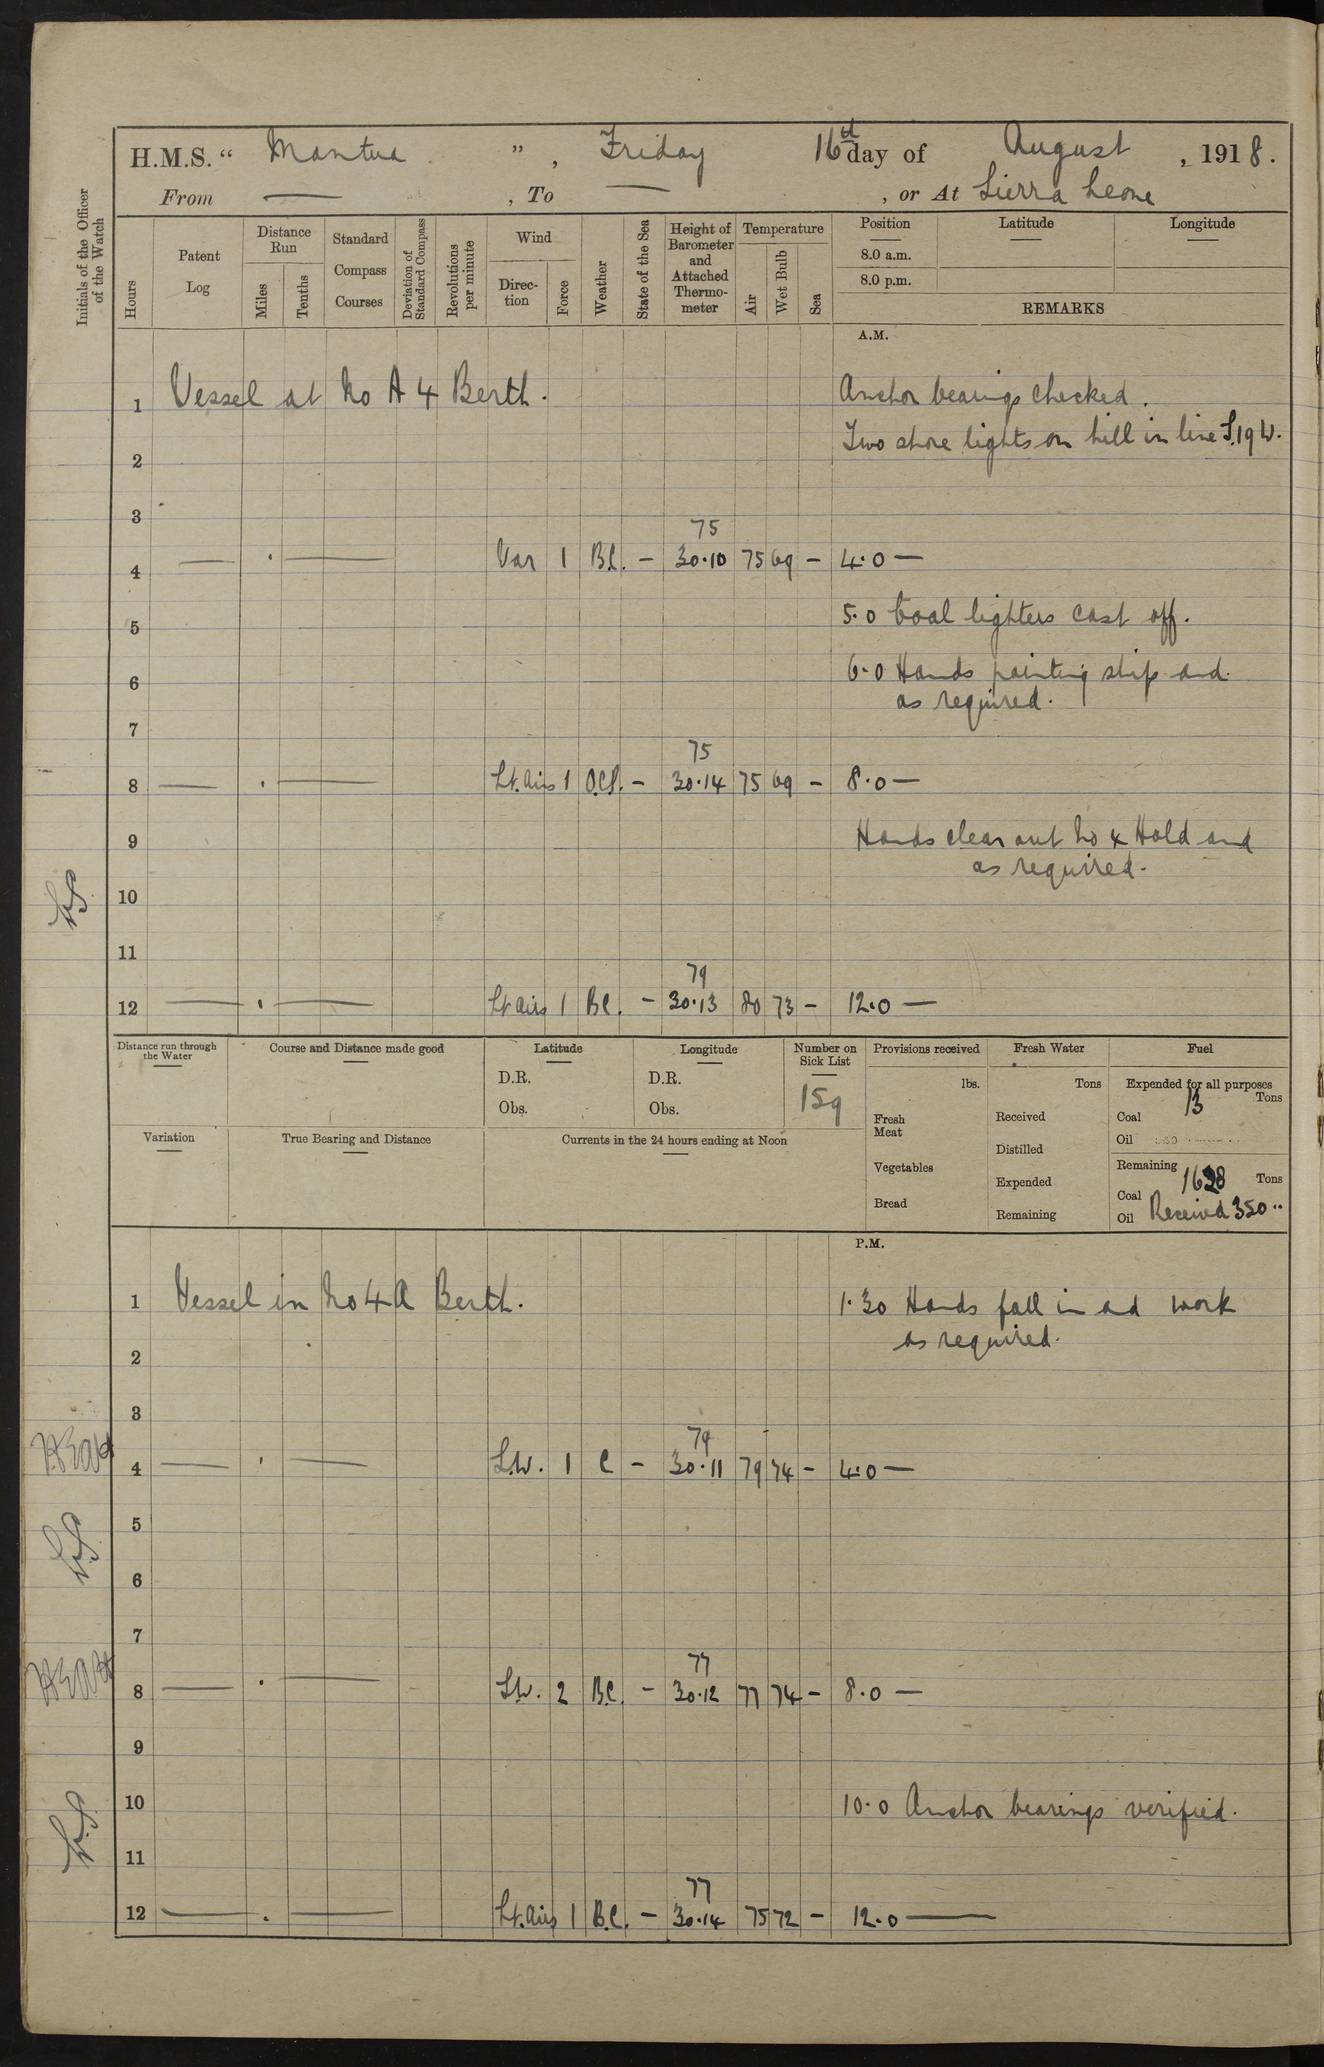 H.M.S. “ Mantua ” , Friday 16th day of August , 1918.
From — , To — , or At Sierra Leone
Initials of the Officer of the Watch
Hours
Patent Log
Distance Run
Miles
Tenths
Standard Compass Courses
Deviation of Standard Compass
Revolutions per minute
Wind
Direc-tion
Force
Weather
State of the Sea
Height of Barometer and Attached Thermo-meter
Temperature
Air
Wet Bulb
Sea
Position Latitude Longitude
8.0 a.m.
8.0 p.m.
REMARKS
A.M.
1 Vessel at No A 4 Berth. Anchor bearings checked.
Two shore lights on hill in line S.19 W.
2
3
75
4 — . — Var 1 B.C. – 30.10 75 69 – 4.0 —
5 5.0 Coal lighters cast off.
6 6.0 Hands painting ship and
as required.
7
75
8 — . — Lt. airs 1 O.C.P. – 30.14 75 69 – 8.0 —
9 Hands clear out No 4 Hold and
as required.
10
11
79
12 — . — Lt airs 1 B.C. – 30.13 80 73 – 12.0 —
Distance run through the Water
Course and Distance made good
Latitude
D.R.
Obs.
Longitude
D.R.
Obs.
Number on Sick List
159
Provisions received
lbs.
Fresh Meat
Vegetables
Bread
Fresh Water
Tons
Received
Distilled
Expended
Remaining
Fuel
Expended for all purposes
Tons
Coal 13
Oil
Remaining
Tons
Coal 1628
Oil Received 350 "
Variation
True Bearing and Distance
Currents in the 24 hours ending at Noon
P.M.
1 Vessel in No 4 A Berth. 1.30 Hands fall in and work
as required.
2
3
79
4 — . — S.W. 1 C – 30.11 79 74 – 4.0 —
5
6
7
77
8 — . — S.W. 2 B.C. – 30.12 77 74 – 8.0 —
9
10 10.0 Anchor bearings verified.
11
77
12 — . — Lt. airs 1 B.C. – 30.14 75 72 – 12.0 —